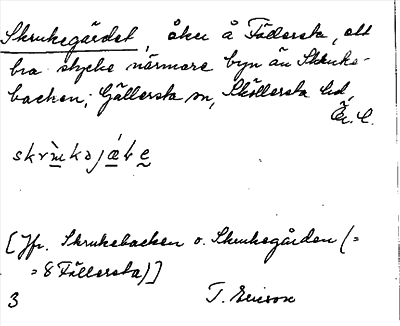 Skrukegärdet, åker å Fällersta, ett
bra stycke närmare byn än Skruke-
backen; Gällersta sn, Sköllersta hd,
Ör. l.
[Jfr. Skrukebacken o. Skrukegården (=
= 8 Fällersta)]
3 T. Ericson